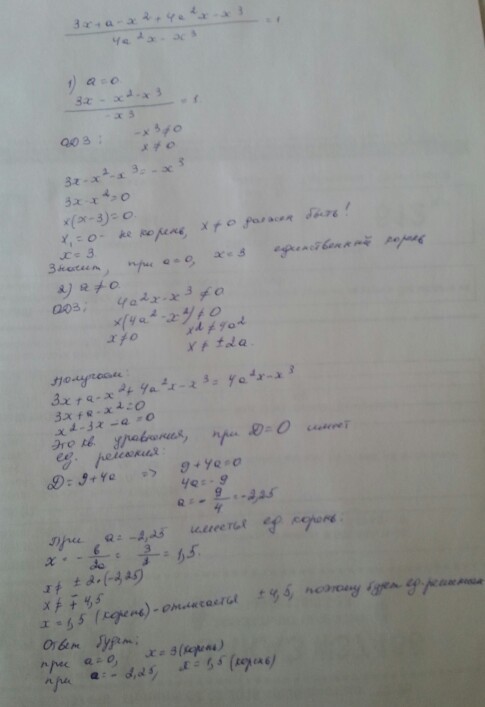 3x+a-x²+4a²x-x³ / 4a²x-x³ = 1
1) a=0.
3x-x²-x³ / -x³ = 1
ОДЗ: -x³≠0
x≠0
3x-x²-x³=-x³
3x-x²=0
x(x-3)=0.
x₁=0- не корень, x≠0 должен быть!
x=3
Значит, при a=0, x=3 единственный корень
2) a≠0
ОДЗ: 4a²x-x³≠0
x(4a²-x²)≠0
x≠0 x²≠4a²
x≠±2a.
Получаем:
3x+a-x²+4a²x-x³=4a²x-x³
3x+a-x²=0
x²-3x-a=0
Это кв. уравнения, при D=0 имеет
ед. решения:
D=9+4a => 9+4a=0
4a=-9
a=-9/4=-2,25
При a=-2,25 имеется ед корень:
x=-b/2a=3/2=1,5.
x≠±2·(-2,25)
x≠∓4,5
x=1,5 (корень)-отличается ±4,5, поэтому будет ед. решением
Ответ будет:
при a=0, x=3(корень)
при a=-2,25, x=1,5(корень)